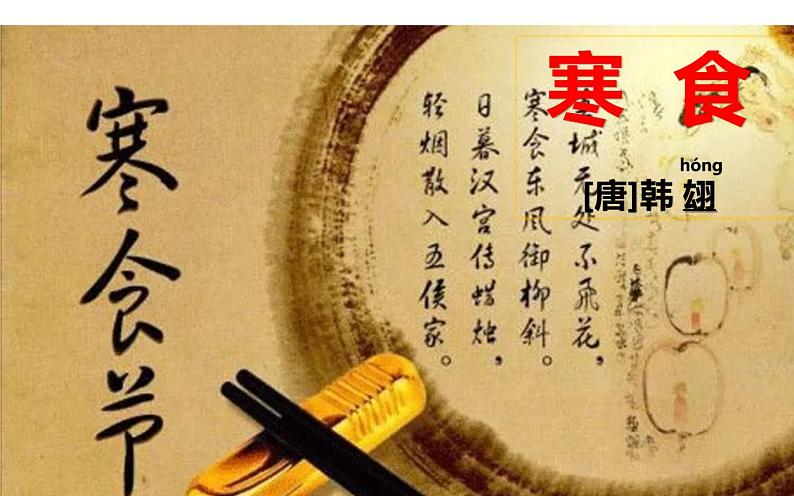 寒 食
hóng
[唐]韩 翃
城无处不飞花，
寒食东风御柳斜。
日暮汉宫传蜡烛，
轻烟散入五侯家。
寒食节